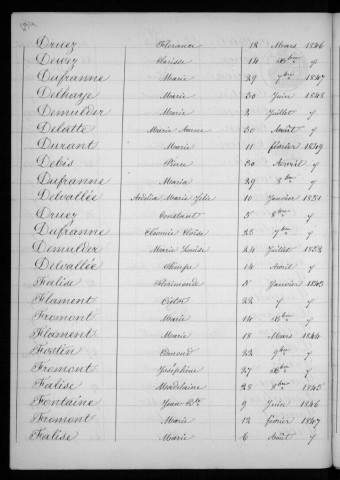 Druez Florance 18 Mars 1846
Dewez Clarisse 14 Xbre y
Dufranne Marie 29 7bre 1847
Delhaye Marie 30 Juin 1848
Demulder Marie 2 Juillet y
Delatte Marie 30 Août y
Durant Marie 11 février 1849
Debis Pierre 30 Avril y
Dufranne Maria 29 8bre y
Delvallée Marie Julie 10 Janvier 1851
Druez Constant 5 8bre y
Dufranne Eloïse 25 7bre y
Demulder Marie Louise 24 Juillet 1853
Delvallée 14 Avril y
Falise Florimonde 5 Janvier 1843
Flament 22 y y
Fromont Marie 14 Xbre y
Flament Marie 18 Mars 1844
Edmond 22 9bre y
Fromont Joséphine 27 Xbre y
Falise Madelaine 28 8bre 1845
Fontaine Jean Bte 9 Juin 1846
Fromont Marie 12 février 1847
Falise Marie 6 Août y